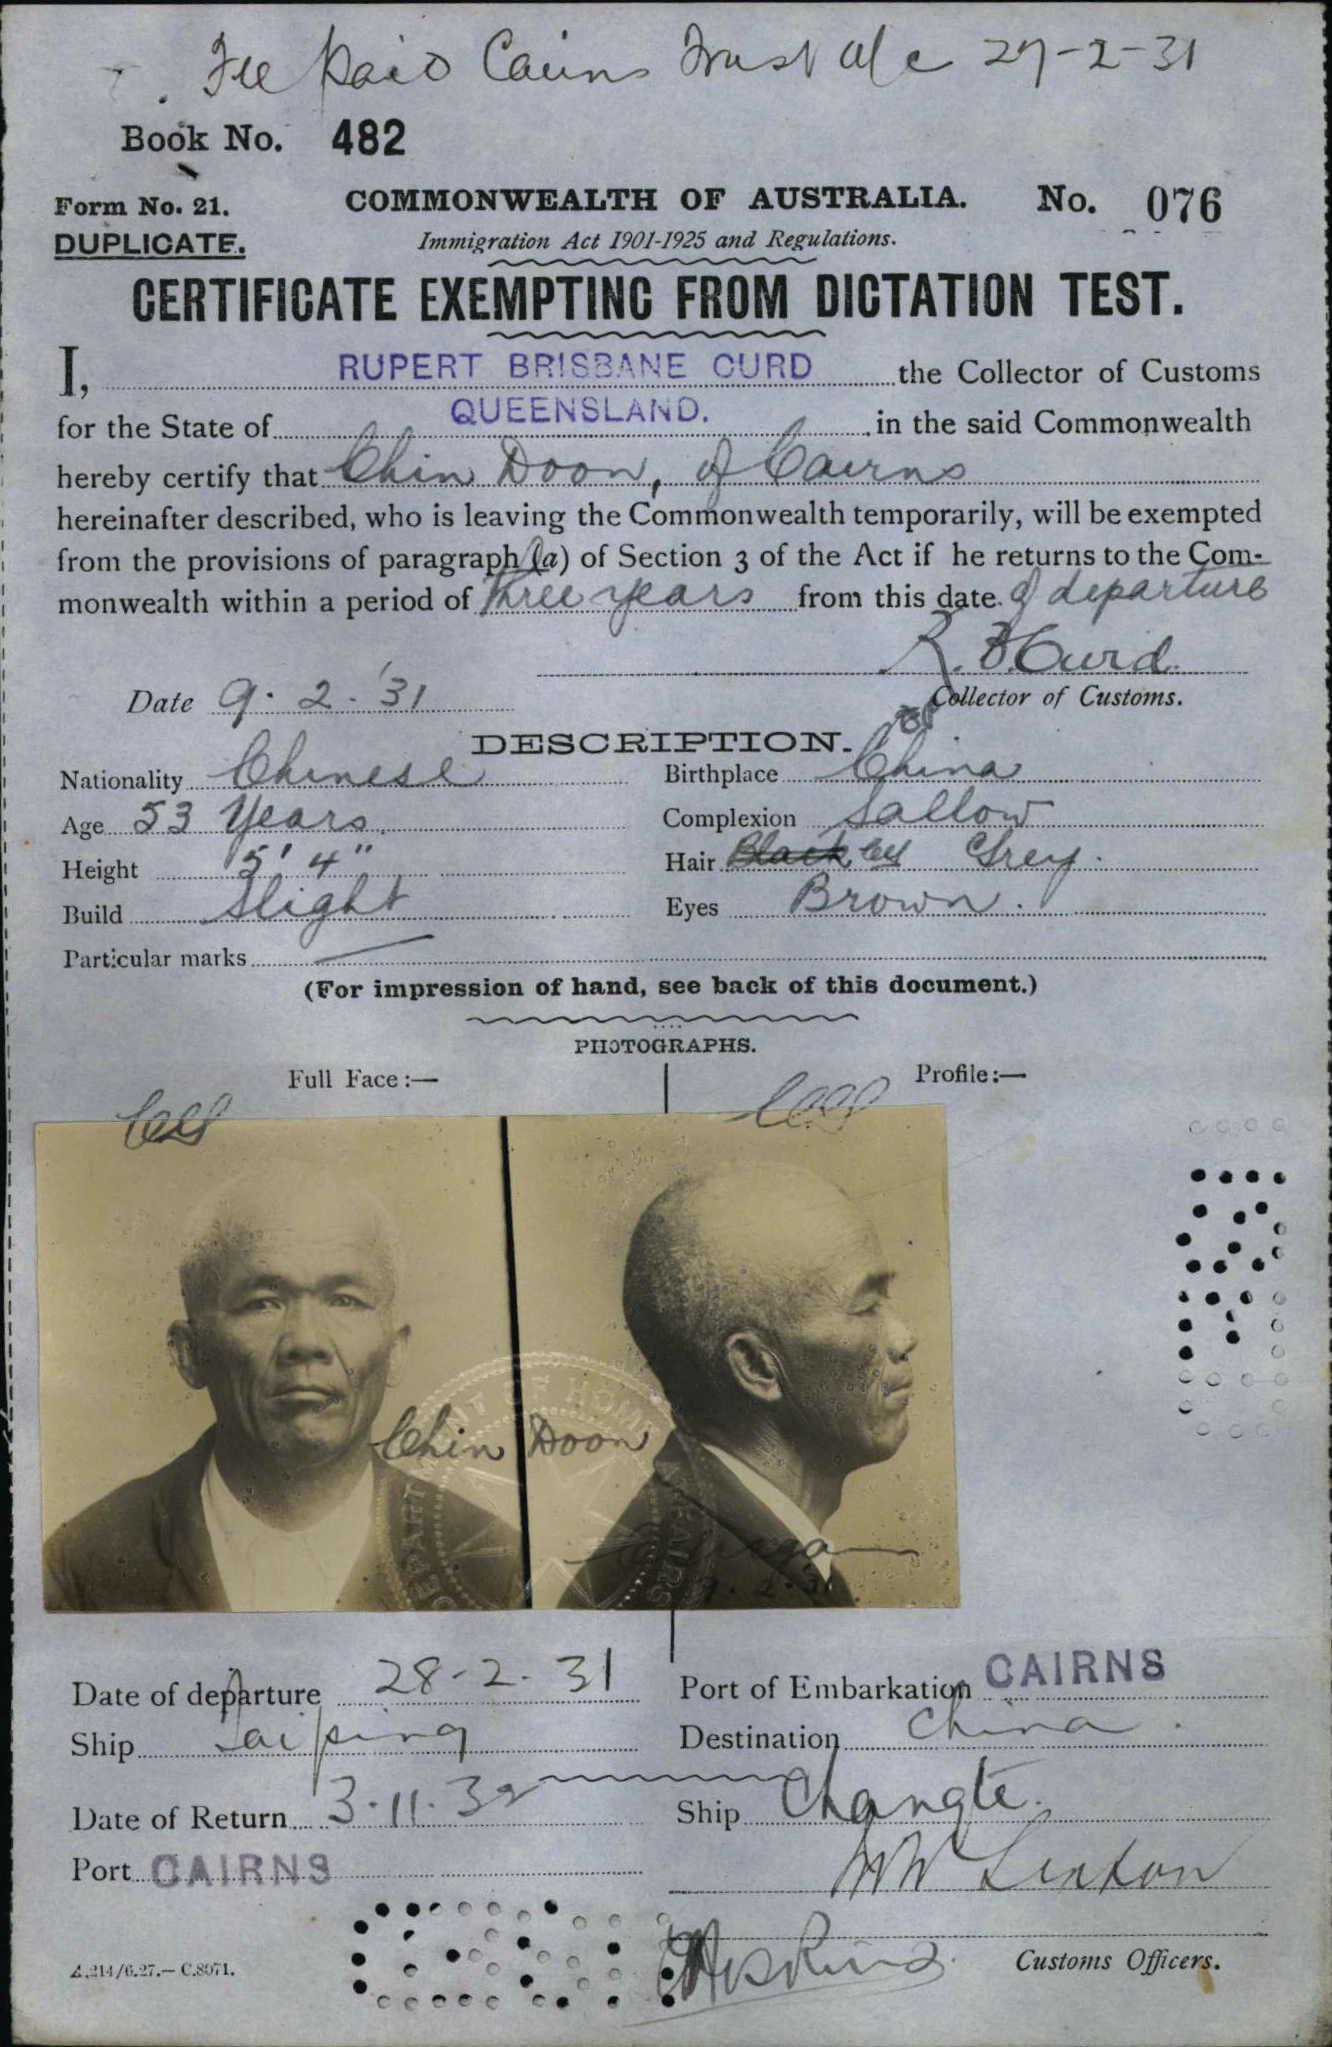 Fee paid Cairns Trust a/c 27-2-31
Book No. 482
Form No. 21. COMMONWEALTH OF AUSTRALIA. No. 076
DUPLICATE. Immigration Act 1901-1925 and Regulations.
CERTIFICATE EXEMPTING FROM DICTATION TEST.
I, RUPERT BRISBANE CURD the Collector of Customs
for the State of QUEENSLAND. in the said Commonwealth
hereby certify that Chin Doon, of Cairns
hereinafter described, who is leaving the Commonwealth temporarily, will be exempted
from the provisions of paragraph (a) of Section 3 of the Act if he returns to the Com-
monwealth within a period of three years from this date of departure
R. B. Curd
Date 9. 2. '31 Collector of Customs.
DESCRIPTION.
Nationality Chinese Birthplace China
Age 53 Years Complexion Sallow
Height 5' 4" Hair Black Grey.
Build Slight Eyes Brown.
Particular marks
(For impression of hand, see back of this document.)
PHOTOGRAPHS.
Full Face:— Profile:—
Chin Doon
DEPARTMENT OF HOME AFFAIRS
9. 2. 31
Date of departure 28-2-31 Port of Embarkation CAIRNS
Ship Taiping Destination China.
Date of Return 3.11.32 Ship Changte.
Port CAIRNS
Customs Officers.
A.214/6.27.—C.8071.